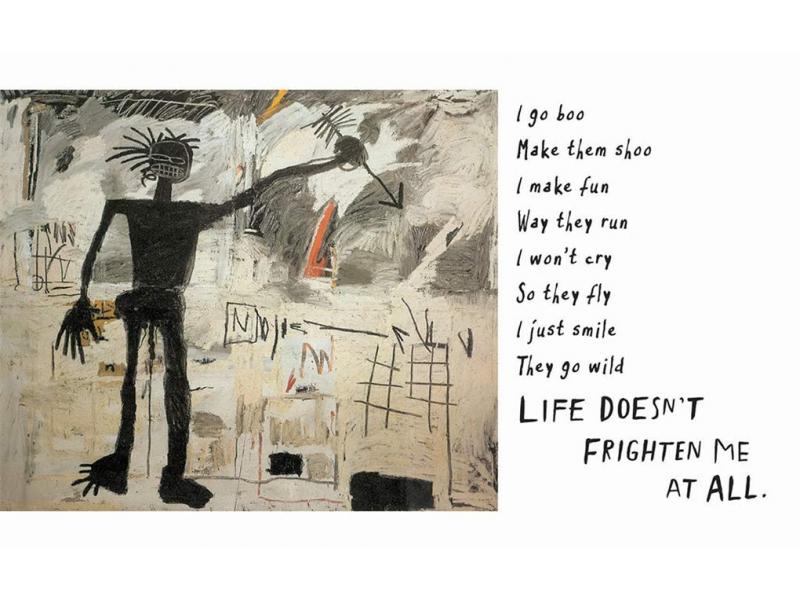 I go boo
Make them shoo
I make fun
Way they run
I won't cry
So they fly
I just smile
They go wild
LIFE DOESN'T
FRIGHTEN ME
AT ALL.